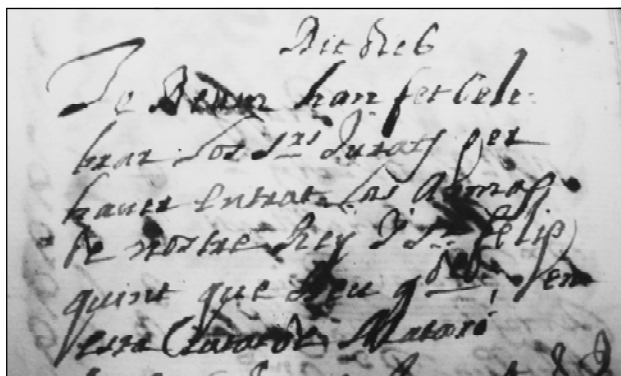 Dit dies
Te Deum han fet Cele-
brar los S.rs Jurats per
haver entrat las Armas
de nostre Rey y Sr. Felip
quint que Deu g.de en
esta Ciutat de Mataró